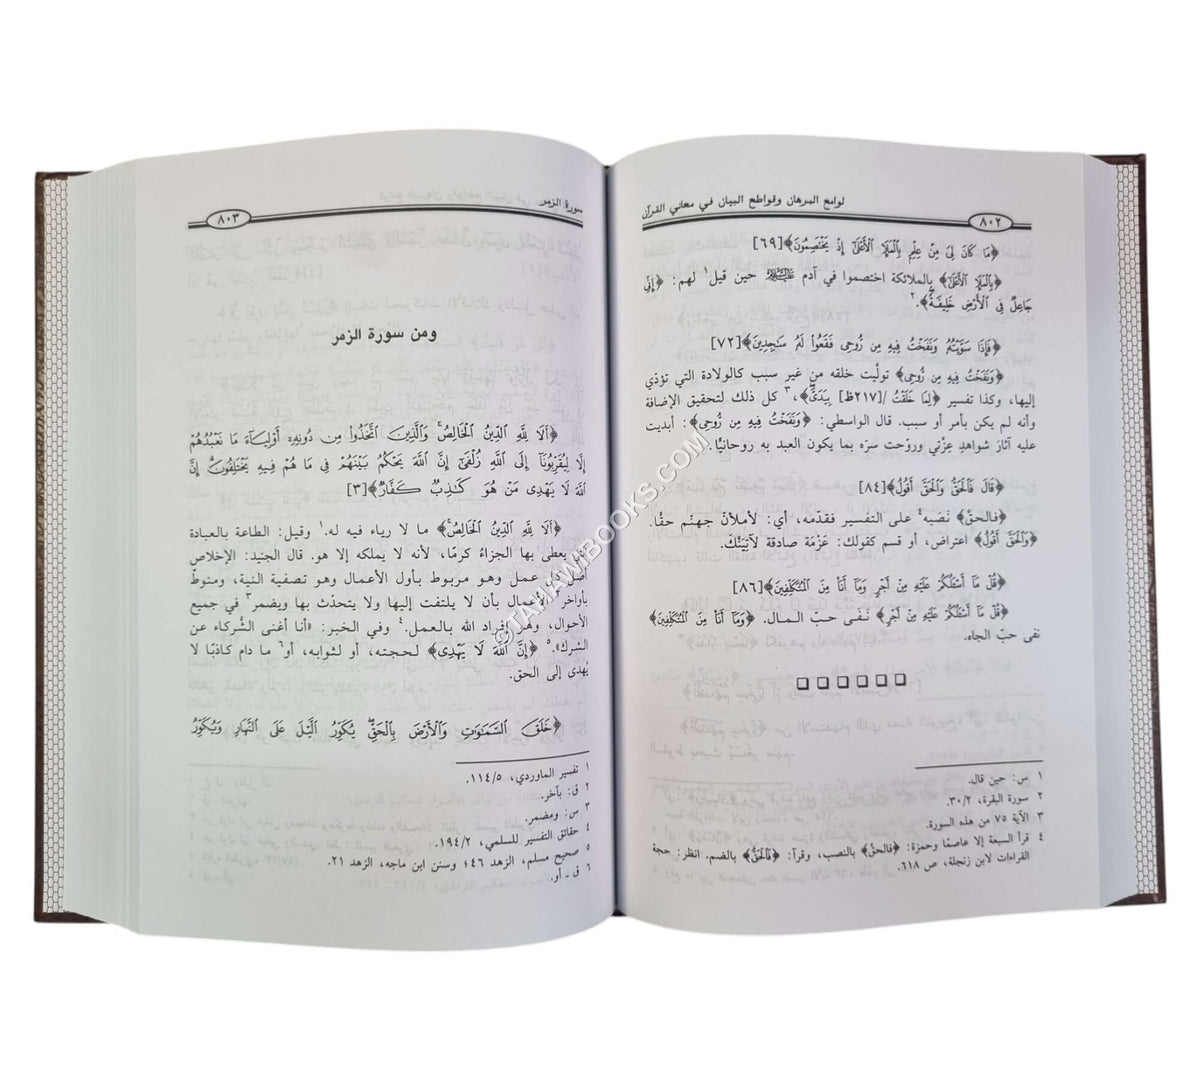 ٨٠٢
لوامع البرهان وقواطع البيان في معاني القرآن
﴿مَا كَانَ لِيَ مِنْ عِلْمٍ بِالْمَلَإِ الْأَعْلَىٰ إِذْ يَخْتَصِمُونَ﴾[٦٩]
﴿بِالْمَلَإِ الْأَعْلَىٰ﴾ بالملائكة اختصموا في آدم عليه السلام حين قيل١ لهم: ﴿إِنِّي
جَاعِلٌ فِي الْأَرْضِ خَلِيفَةً﴾.٢
﴿فَإِذَا سَوَّيْتُهُ وَنَفَخْتُ فِيهِ مِن رُّوحِي فَقَعُوا لَهُ سَاجِدِينَ﴾[٧٢]
﴿وَنَفَخْتُ فِيهِ مِن رُّوحِي﴾ تولّيت خلقه من غير سبب كالولادة التي تؤدّي
إليها، وكذا تفسير ﴿لِمَا خَلَقْتُ /[٢١٧ظ] بِيَدَيَّ﴾،٣ كل ذلك لتحقيق الإضافة
وأنه لم يكن بأمر أو سبب. قال الواسطي: ﴿وَنَفَخْتُ فِيهِ مِن رُّوحِي﴾: أبديت
عليه آثار شواهد عِزّتي وروّحت سرّه بما يكون العبد به روحانيًّا.
﴿قَالَ فَالْحَقُّ وَالْحَقَّ أَقُولُ﴾[٨٤]
﴿فالحقَّ﴾ نَصَبه٤ على التفسير فقدّمه، أي: لأملأنّ جهنّم حقًّا.
﴿وَالْحَقَّ أَقُولُ﴾ اعتراض، أو قسم كقولك: عَزْمَة صادقة لآتِيَنَّكَ.
﴿قُلْ مَا أَسْأَلُكُمْ عَلَيْهِ مِنْ أَجْرٍ وَمَا أَنَا مِنَ الْمُتَكَلِّفِينَ﴾[٨٦]
﴿قُلْ مَا أَسْأَلُكُمْ عَلَيْهِ مِنْ أَجْرٍ﴾ نفى حبّ المال. ﴿وَمَا أَنَا مِنَ الْمُتَكَلِّفِينَ﴾
نفى حبّ الجاه.
١ س: حين قال.
٢ سورة البقرة، ٣٠/٢.
٣ الآية ٧٥ من هذه السورة.
٤ قرأ السبعة إلا عاصمًا وحمزة: ﴿فالحقَّ﴾ بالنصب، وقرآ: ﴿فَالْحَقُّ﴾ بالضم. انظر: حجة
القراءات لابن زنجلة، ص ٦١٨.
سورة الزمر
٨٠٣
ومن سورة الزمر
﴿أَلَا لِلَّهِ الدِّينُ الْخَالِصُ وَالَّذِينَ اتَّخَذُوا مِن دُونِهِ أَوْلِيَاءَ مَا نَعْبُدُهُمْ
إِلَّا لِيُقَرِّبُونَا إِلَى اللَّهِ زُلْفَىٰ إِنَّ اللَّهَ يَحْكُمُ بَيْنَهُمْ فِي مَا هُمْ فِيهِ يَخْتَلِفُونَ إِنَّ
اللَّهَ لَا يَهْدِي مَنْ هُوَ كَاذِبٌ كَفَّارٌ﴾[٣]
﴿أَلَا لِلَّهِ الدِّينُ الْخَالِصُ﴾ ما لا رياء فيه له.١ وقيل: الطاعة بالعبادة
يعطى بها الجزاءُ كرمًا، لأنه لا يملكه إلا هو. قال الجنيد: الإخلاص
أصل عمل وهو مربوط بأول الأعمال وهو تصفية النية، ومنوطٌ
بأواخر٢ الأعمال بأن لا يلتفت إليها ولا يتحدّث بها ويضمر٣ في جميع
الأحوال، وهو إفراد الله بالعمل.٤ وفي الخبر: «أنا أغنى الشُّركاء عن
الشرك».٥ ﴿إِنَّ اللَّهَ لَا يَهْدِي﴾ لحجته، أو لثوابه، أو٦ ما دام كاذبًا لا
يُهدى إلى الحق.
﴿خَلَقَ السَّمَاوَاتِ وَالْأَرْضَ بِالْحَقِّ يُكَوِّرُ اللَّيْلَ عَلَى النَّهَارِ وَيُكَوِّرُ
١ تفسير الماوردي، ١١٤/٥.
٢ ق: بآخر.
٣ س: ومضمر.
٤ حقائق التفسير للسلمي، ١٩٤/٢.
٥ صحيح مسلم، الزهد ٤٦؛ وسنن ابن ماجه، الزهد ٢١.
٦ ق ـ أو.
©TAHAWIBOOKS.COM